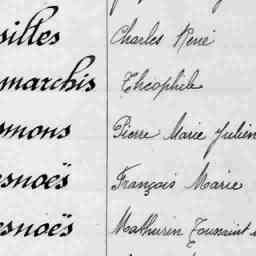 silles Charles René
marchis Théophile
mons Pierre Marie Julien
snoës François Marie
snoës Mathurin Toussaint